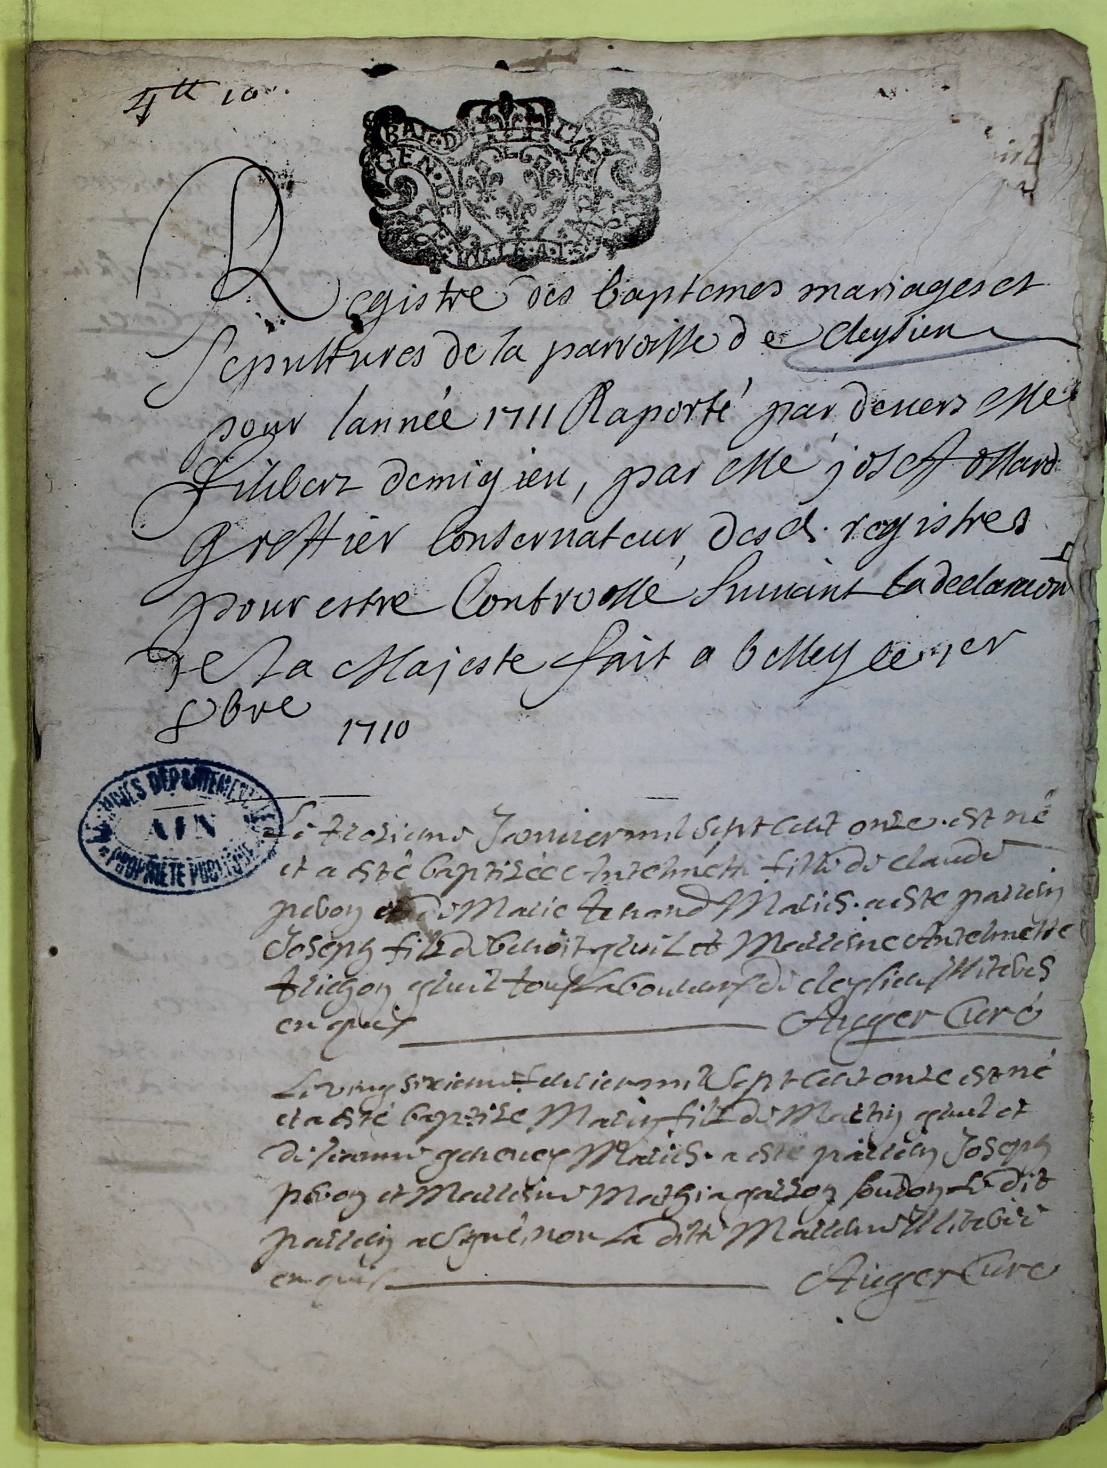 4tt 10
GEN.D
Registre des baptemes mariages et
Sepultures de la parroisse de cleyzieu
pour lannée 1711 Raporté par devers Me
filibert demigieu, par Me josef ollard
Greffier Conservateur desd. registres
pour estre Controllé suivant la declaraon
de sa Majesté fait a belley le 1er
8bre 1710
ARCHIVES DÉPARTEMENTALES
AIN
PROPRIÉTÉ PUBLIQUE
Le troisieme Janvier mil sept cent onze est né
et a esté baptisée Antelmette fille de claude
et de Marie Mariés a esté parrein
Joseph fils de benoit et Marrene Antelmette
tous Laboureurs de cleyzieu illiterés
enquis Auger Curé
Le ving sixieme fevrier mil sept cent onze est né
et a esté baptisé fils de et
de Jeanne Mariés a esté parrein Joseph
et Marrene Le dit
parrein a signé, non La ditte Marrene illiterée
enquise Auger Curé